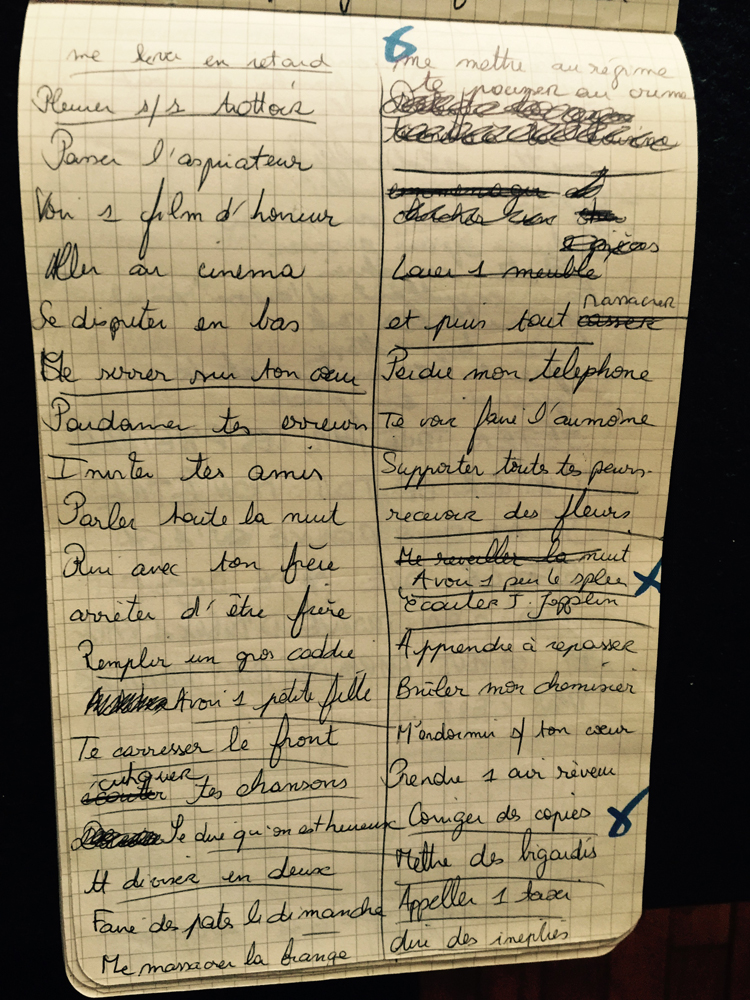 me lever en retard
Pleurer s/s trottoir
Passer l'aspirateur
Voir 1 film d'horreur
Aller au cinema
Se disputer en bas
Me serrer sur ton cœur
Pardonner tes erreurs
Inviter tes amis
Parler toute la nuit
Rire avec ton frère
arrêter d'être fière
Remplir un gros caddie
Avoir 1 petite fille
Te carresser le front
tes chansons
Se dire qu'on est heureux
diviser en deux
Faire des pates le dimanche
Me massacrer la frange
6
me mettre au régime
te pousser au crime
Louer 1 meuble
et puis tout massacrer
casser
Perdre mon telephone
Te voir faire l'aumône
Supporter toutes tes peurs
recevoir des fleurs
Me reveiller la nuit
Avoir 1 peu le spleen
écouter J. Jopplin
Apprendre à repasser
Brûler mon chemisier
M'endormir s/ ton cœur
Prendre 1 air rêveur
Corriger des copies
Mettre des bigoudis
Appeller 1 taxi
dire des inepties